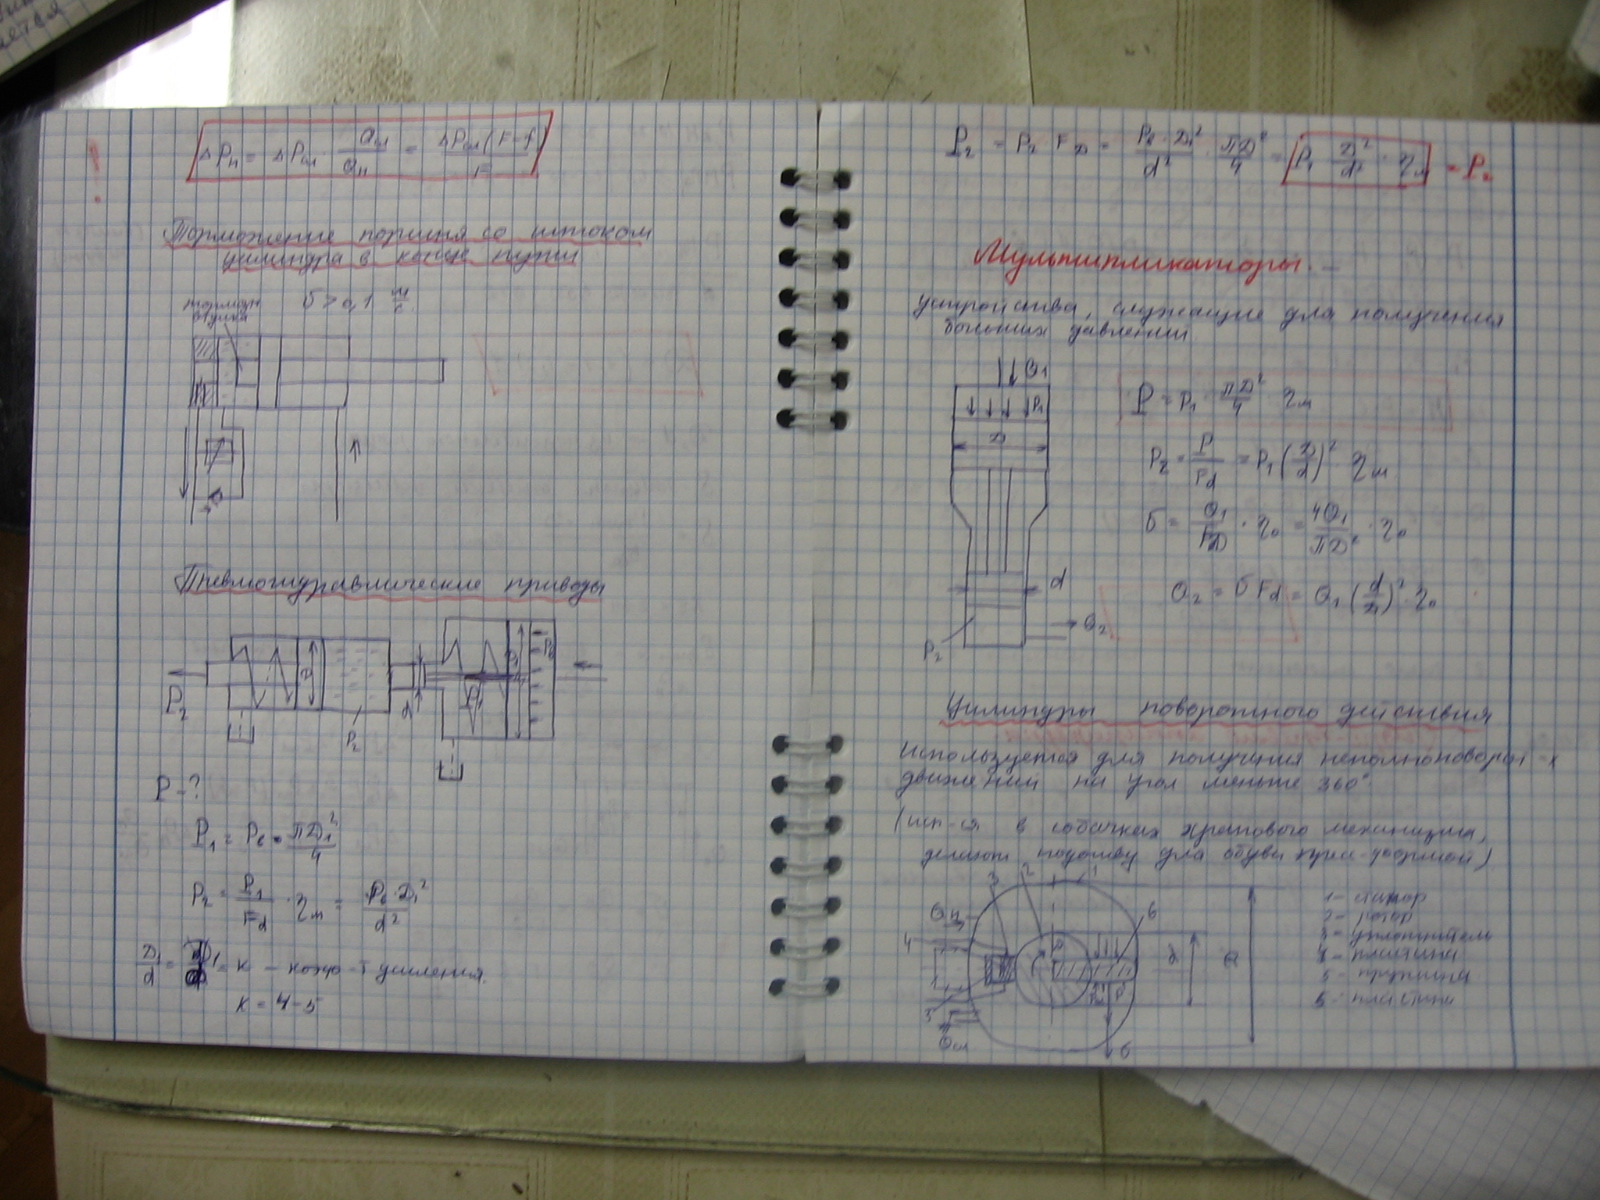 ΔPн = ΔPсл · Qсл/Qн = ΔPсл(F-f)/F
!
Торможение поршня со штоком
цилиндра в конце пути
тормозн
втулка
V > 0,1 м/с
Пневмогидравлические приводы
P₂
D
P₂
d
D₁
Pв
P - ?
P₁ = Pв · ПD₁²/4
P₂ = P₁/Fd · ηм = Pв·D₁²/d²
D₁/d = K – коэф-т усиления.
K = 4-5
P₂ = P₂ · FD = Pв·D₁²/d² · ПD²/4 = P₁ D²/d² · ηм = P₂
Мультипликаторы. –
устройства, служащие для получения
больших давлений
Q₁
P₁
D
d
Q₂
P₂
P = P₁ · ПD²/4 · ηм
P₂ = P/Fd = P₁(D/d)² ηм
V = Q₁/FD · η₀ = 4Q₁/ПD² · η₀
Q₂ = V Fd = Q₁(d/D)² · η₀
Цилиндры поворотного действия
Используется для получения неполноповорот-х
движений на угол меньше 360°
(исп-ся в собачках храпового механизма,
делают подошву для обуви
3
2
1
Qн
4
6
5
Qсл
d
P
1 – статор
2 – ротор
3 – уплотнитель
4 – пластина
5 – пружина
6 – пластина